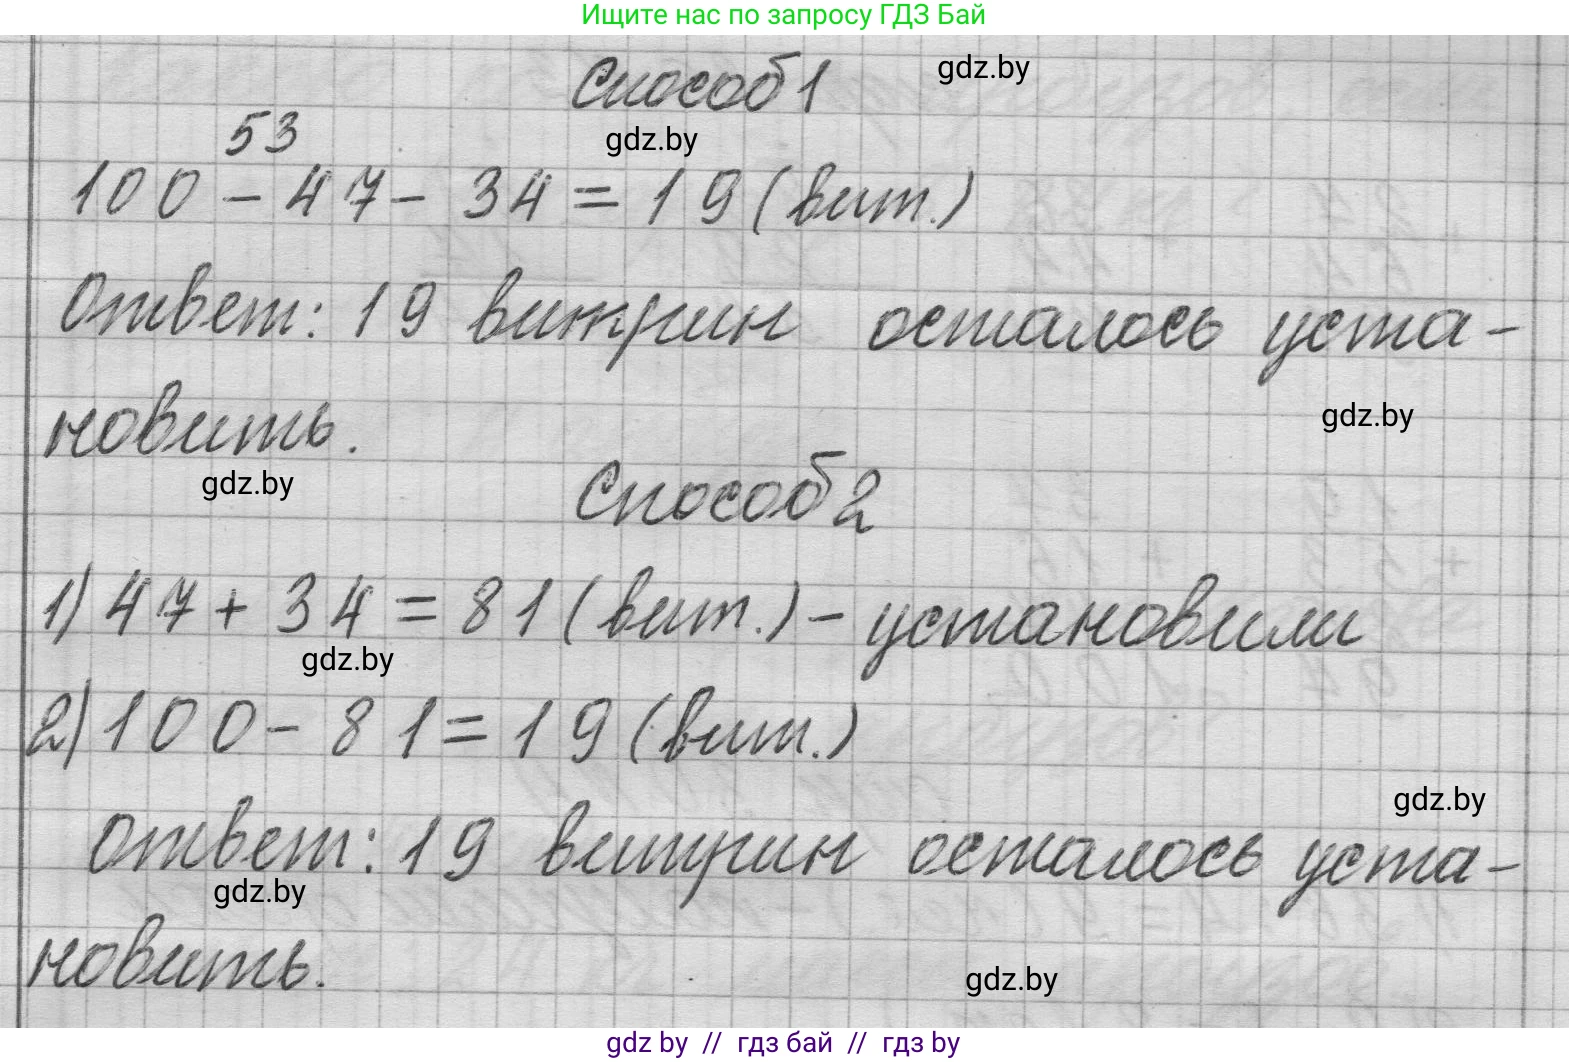 Ищите нас по запросу ГДЗ Бай
Способ 1
gdz.by
53
gdz.by
100 - 47 - 34 = 19 (вит.)
Ответ: 19 витрин осталось уста-
новить.
gdz.by
gdz.by
Способ 2
1) 47 + 34 = 81 (вит.) - установили
gdz.by
2) 100 - 81 = 19 (вит.)
gdz.by
Ответ: 19 витрин осталось уста-
gdz.by
новить.
gdz.by
gdz by // гдз бай // гдз by